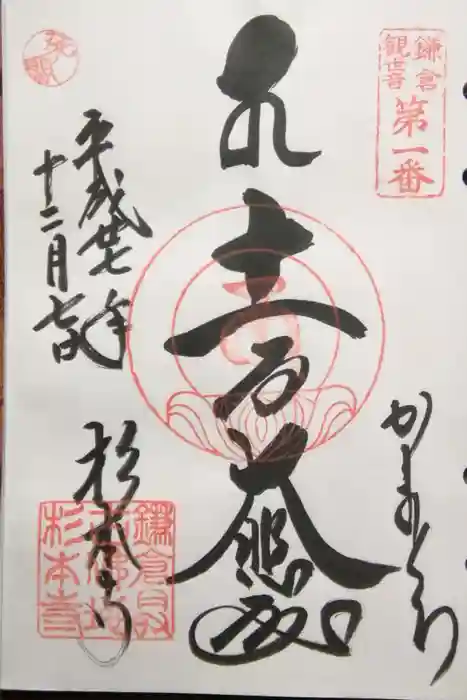 鎌倉
観世音
第一番
かまくら
十一面大悲殿
発願
平成廿七年
十二月七日
杉本寺
鎌倉最
古佛地
杉本寺